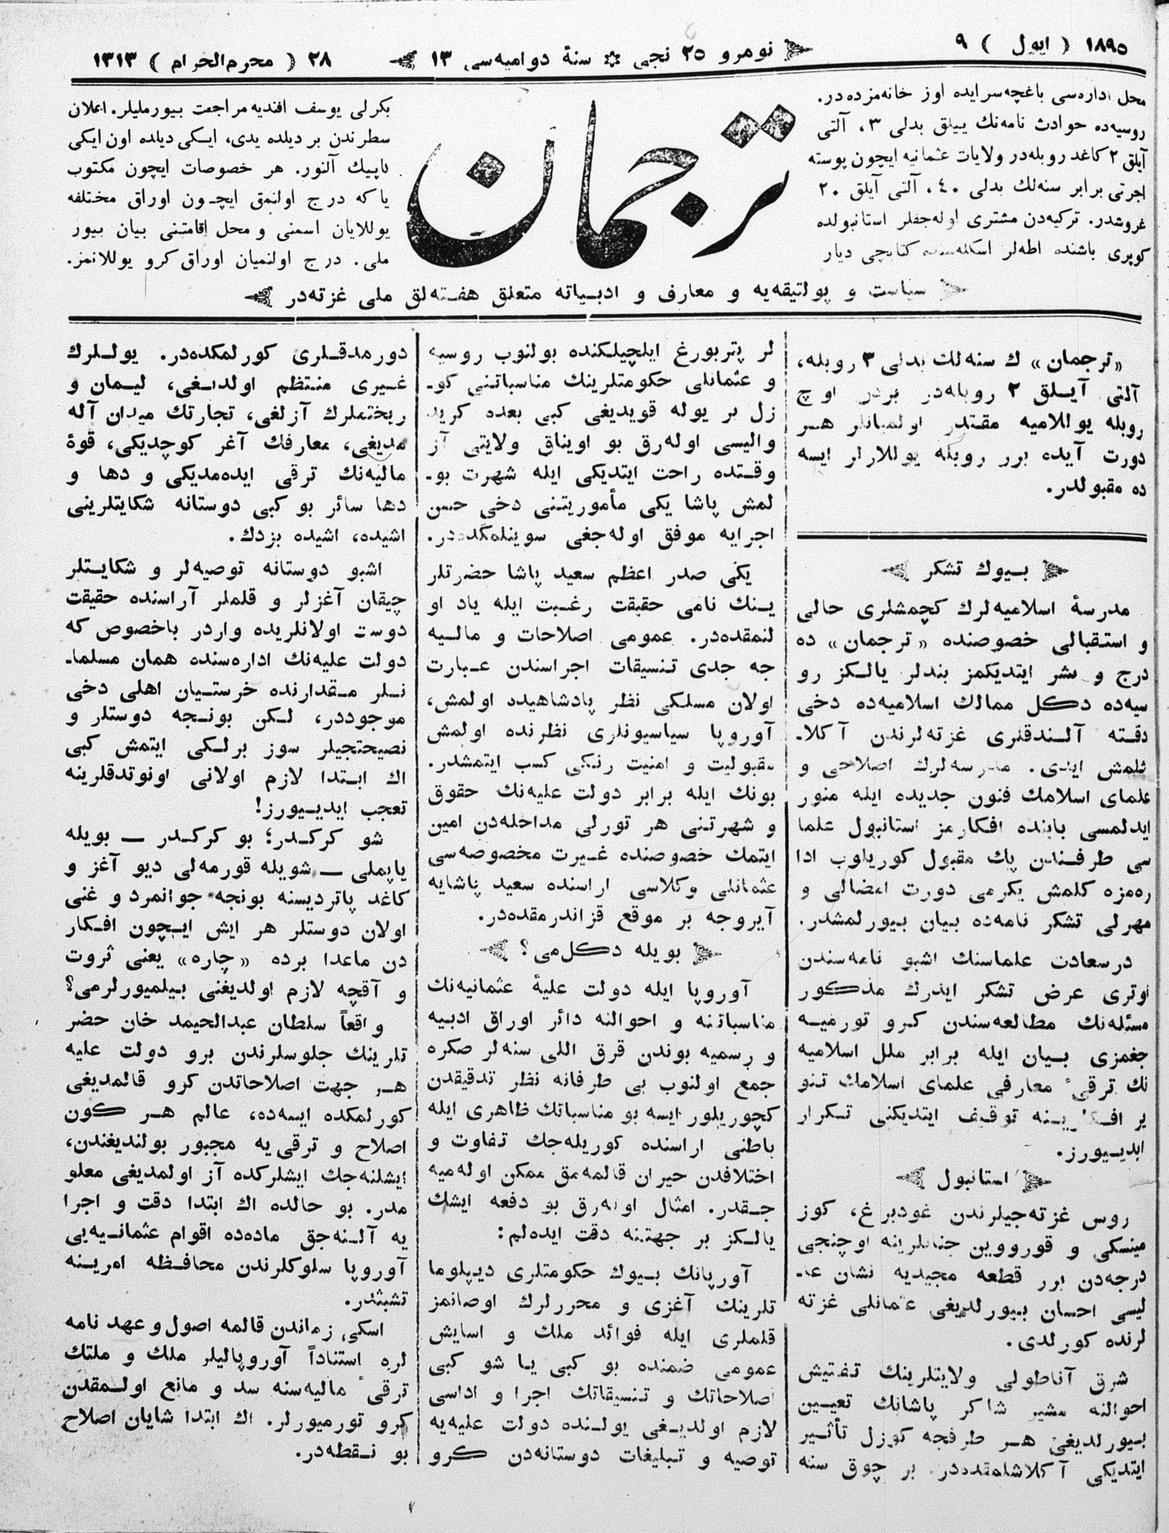 ١٨٩٥ ( ايول ) ٩
نومرو ٢٥ نجى ✲ سنهٔ دواميه‌سى ١٣
٢٨ ( محرم‌الحرام ) ١٣١٣
محل اداره‌سى باغچه‌سرايده اوز خانه‌مزده‌در.
روسيه‌ده حوادث نامه‌نك ييللق بدلى ٣، آلتى
آيلق ٢ كاغد روبله‌در ولايات عثمانيه ايچون پوسته
اجرتى برابر سنه‌لك بدلى ٤٠، آلتى آيلق ٢٠
غروشدر. تركيه‌دن مشترى اوله‌جقلر استانبولده
كوپرى باشنده اطه‌لر اسكله‌سنده كتابچى ديار
ترجمان
بكرلى يوسف افنديه مراجعت بيورمليلر. اعلان
سطرندن بر ديلده يدى، ايكى ديلده اون ايكى
كاپيك آلنور. هر خصوصات ايچون مكتوب
ياكه درج اولنمق ايچون اوراق مختلفه
يوللايان اسمنى و محل اقامتنى بيان بيور
ملى. درج اولنميان اوراق كرو يوللانمز.
سياست و پولتيقه‌يه و معارف و ادبياته متعلق هفته‌لق ملى غزته‌در
«ترجمان» ك سنه‌لك بدلى ٣ روبله،
آلتى آيلق ٢ روبله‌در بردن اوچ
روبله يوللاميه مقتدر اولميانلر هر
دورت آيده برر روبله يوللارلر ايسه
ده مقبولدر.
بيوك تشكر
مدرسهٔ اسلاميه‌لرك كچمشلرى حالى
و استقبالى خصوصنده «ترجمان» ده
درج و نشر ايتديكمز بندلر يالكز رو
سيه‌ده دكل ممالك اسلاميه‌ده دخى
دقته آلندقلرى غزته‌لرندن آكلا-
ثلمش ايدى. مدرسه‌لرك اصلاحى و
علماى اسلامك فنون جديده ايله منور
ايدلمسى بابنده افكارمز استانبول علما
سى طرفندن پك مقبول كوريلوب ادا
ره‌مزه كلمش يكرمى دورت امضالى و
مهرلى تشكر نامه‌ده بيان بيورلمشدر.
درسعادت علماسنك اشبو نامه‌سندن
اوترى عرض تشكر ايدرك مذكور
مسئله‌نك مطالعه‌سندن كرو تورميه
جغمزى بيان ايله برابر ملل اسلاميه
نك ترقىٔ معارفى علماى اسلامك تنو
ير افكارينه توقيف ايتديكنى تكرار
ايدييورز.
استانبول
روس غزته‌جيلرندن غودبرغ، كوز
مينسكى و قورووين جنابلرينه اوچنجى
درجه‌دن برر قطعه مجيديه نشان عا-
ليسى احسان بيورلديغى عثمانلى غزته
لرنده كورلدى.
شرق آناطولى ولايتلرينك تفتيش
احوالنه مشير شاكر پاشانك تعيين
بيورلديغى هر طرفجه كوزل تأثير
ايتديكى آكلاشلمقده‌در. بر چوق سنه
لر پتربورغ ايلچيلكنده بولنوب روسيه
و عثمانلى حكومتلرينك مناسباتنى كو-
زل بر يوله قويديغى كبى بعده كريد
واليسى اوله‌رق بو اويناق ولايتى آز
وقتده راحت ايتديكى ايله شهرت بو-
لمش پاشا يكى مأموريتنى دخى حسن
اجرايه موفق اوله‌جغى سوينلمكده‌در.
يكى صدر اعظم سعيد پاشا حضرتلر
ينك نامى حقيقت رغبت ايله ياد او
لنمقده‌در. عمومى اصلاحات و ماليه
جه جدى تنسيقات اجراسندن عبارت
اولان مسلكى نظر پادشاهيده اولمش،
آوروپا سياسيونلرى نظرنده اولمش
مقبوليت و امنيت رنكى كسب ايتمشدر.
بونك ايله برابر دولت عليه‌نك حقوق
و شهرتنى هر تورلى مداخله‌دن امين
ايتمك خصوصنده غيرت مخصوصه‌سى
عثمانلى وكلاسى اراسنده سعيد پاشايه
آيروجه بر موقع قزاندرمقده‌در.
بويله دكل‌مى؟
آوروپا ايله دولت عليهٔ عثمانيه‌نك
مناسباتنه و احوالنه دائر اوراق ادبيه
و رسميه بوندن قرق اللى سنه‌لر صكره
جمع اولنوب بى طرفانه نظر تدقيقدن
كچوريلور ايسه بو مناسباتك ظاهرى ايله
باطنى اراسنده كوريله‌جك تفاوت و
اختلافدن حيران قالمه‌مق ممكن اوله‌ميه
جقدر. امثال اوله‌رق بو دفعه ايشك
يالكز بر جهتنه دقت ايده‌لم:
آورپانك بيوك حكومتلرى ديپلوما
تلرينك آغزى و محررلرك اوصانمز
قلملرى ايله فوائد ملك و اسايش
عمومى ضمنده بو كبى يا شو كبى
اصلاحاتك و تنسيقاتك اجرا و اداسى
لازم اولديغى يولنده دولت عليه‌يه
توصيه و تبليغات دوستانه‌دن كرو
دورمدقلرى كورلمكده‌در. يوللرك
غيرى منتظم اولديغى، ليمان و
ريختملرك آزلغى، تجارتك ميدان آله
مديغى، معارفك آغر كوچديكى، قوهٔ
ماليه‌نك ترقى ايده‌مديكى و دها و
دها سائر بو كبى دوستانه شكايتلرينى
اشيده، اشيده بزدك.
اشبو دوستانه توصيه‌لر و شكايتلر
چيقان آغزلر و قلملر آراسنده حقيقت
دوست اولانلريده واردر باخصوص كه
دولت عليه‌نك اداره‌سنده همان مسلما-
نلر مقدارنده خرستيان اهلى دخى
موجوددر، لكن بونجه دوستلر و
نصيحتجيلر سوز برلكى ايتمش كبى
اك ابتدا لازم اولانى اونوتدقلرينه
تعجب ايدييورز!
شو كركدر؛ بو كركدر — بويله
ياپملى — شويله قورمه‌لى ديو آغز و
كاغد پاترديسنه بونجه جوانمرد و غنى
اولان دوستلر هر ايش ايچون افكار
دن ماعدا برده «چاره» يعنى ثروت
و آقچه لازم اولديغنى بيلميورلرمى؟
واقعاً سلطان عبدالحيمد خان حضر
تلرينك جلوسلرندن برو دولت عليه
هر جهت اصلاحاتدن كرو قالمديغى
كورلمكده ايسه‌ده، عالم هر كون
اصلاح و ترقى يه مجبور بولنديغندن،
ايشلنه‌جك ايشلركده آز اولمديغى معلو
مدر. بو حالده اك ابتدا دقت و اجرا
يه آلنه‌جق ماده‌ده اقوام عثمانيه‌يى
آوروپا سلوكلرندن محافظه امرينه
تشبثدر.
اسكى زماندن قالمه اصول و عهد نامه
لره استناداً آوروپاليلر ملك و ملتك
ترقىٔ ماليه‌سنه سد و مانع اولمقدن
كرو تورميورلر. اك ابتدا شايان اصلاح
بو نقطه‌در.